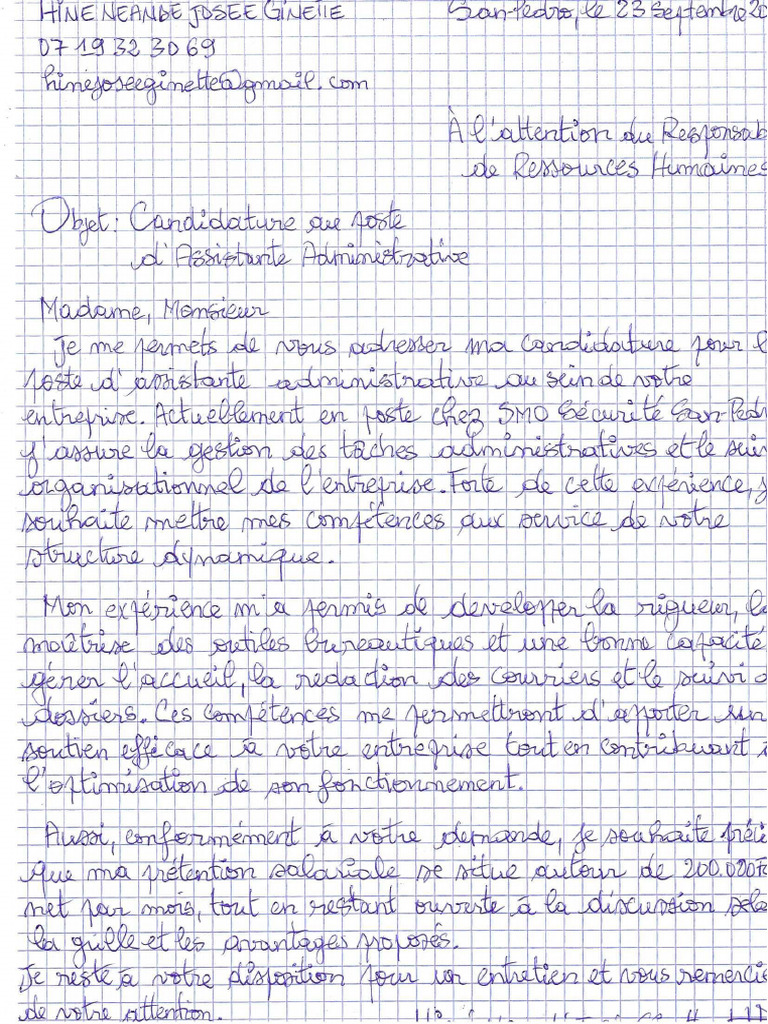 HINE NEANDE JOSEE GINETTE
San-Pedro, le 23 Septembre 20
07 19 32 30 69
hinejoseeginette@gmail.com
À l'attention du Responsab
de Ressources Humaines
Objet: Candidature au poste
d'Assistante Administrative
Madame, Monsieur
Je me permets de vous adresser ma candidature pour l
poste d'assistante administrative au sein de votre
entreprise. Actuellement en poste chez SMO Sécurité San-Pedr
j'assure la gestion des tâches administratives et le sui
organisationnel de l'entreprise. Forte de cette expérience, j
souhaite mettre mes compétences aux service de votre
structure dynamique.
Mon expérience m'a permis de developper la rigueur, la
maîtrise des outiles bureautiques et une bonne capacité
gérer l'accueil, la redaction des courriers et le suivi d
dossiers. Ces compétences me permettront d'apporter un
soutien efficace à votre entreprise tout en contribuant à
l'optimisation de son fonctionnement.
Aussi, conformément à votre demande, je souhaite préci
que ma prétention salariale se situe autour de 200.000F
net par mois, tout en restant ouverte à la discussion selo
la grille et les avantages proposés.
Je reste à votre disposition pour un entretien et vous remercie
de votre attention.